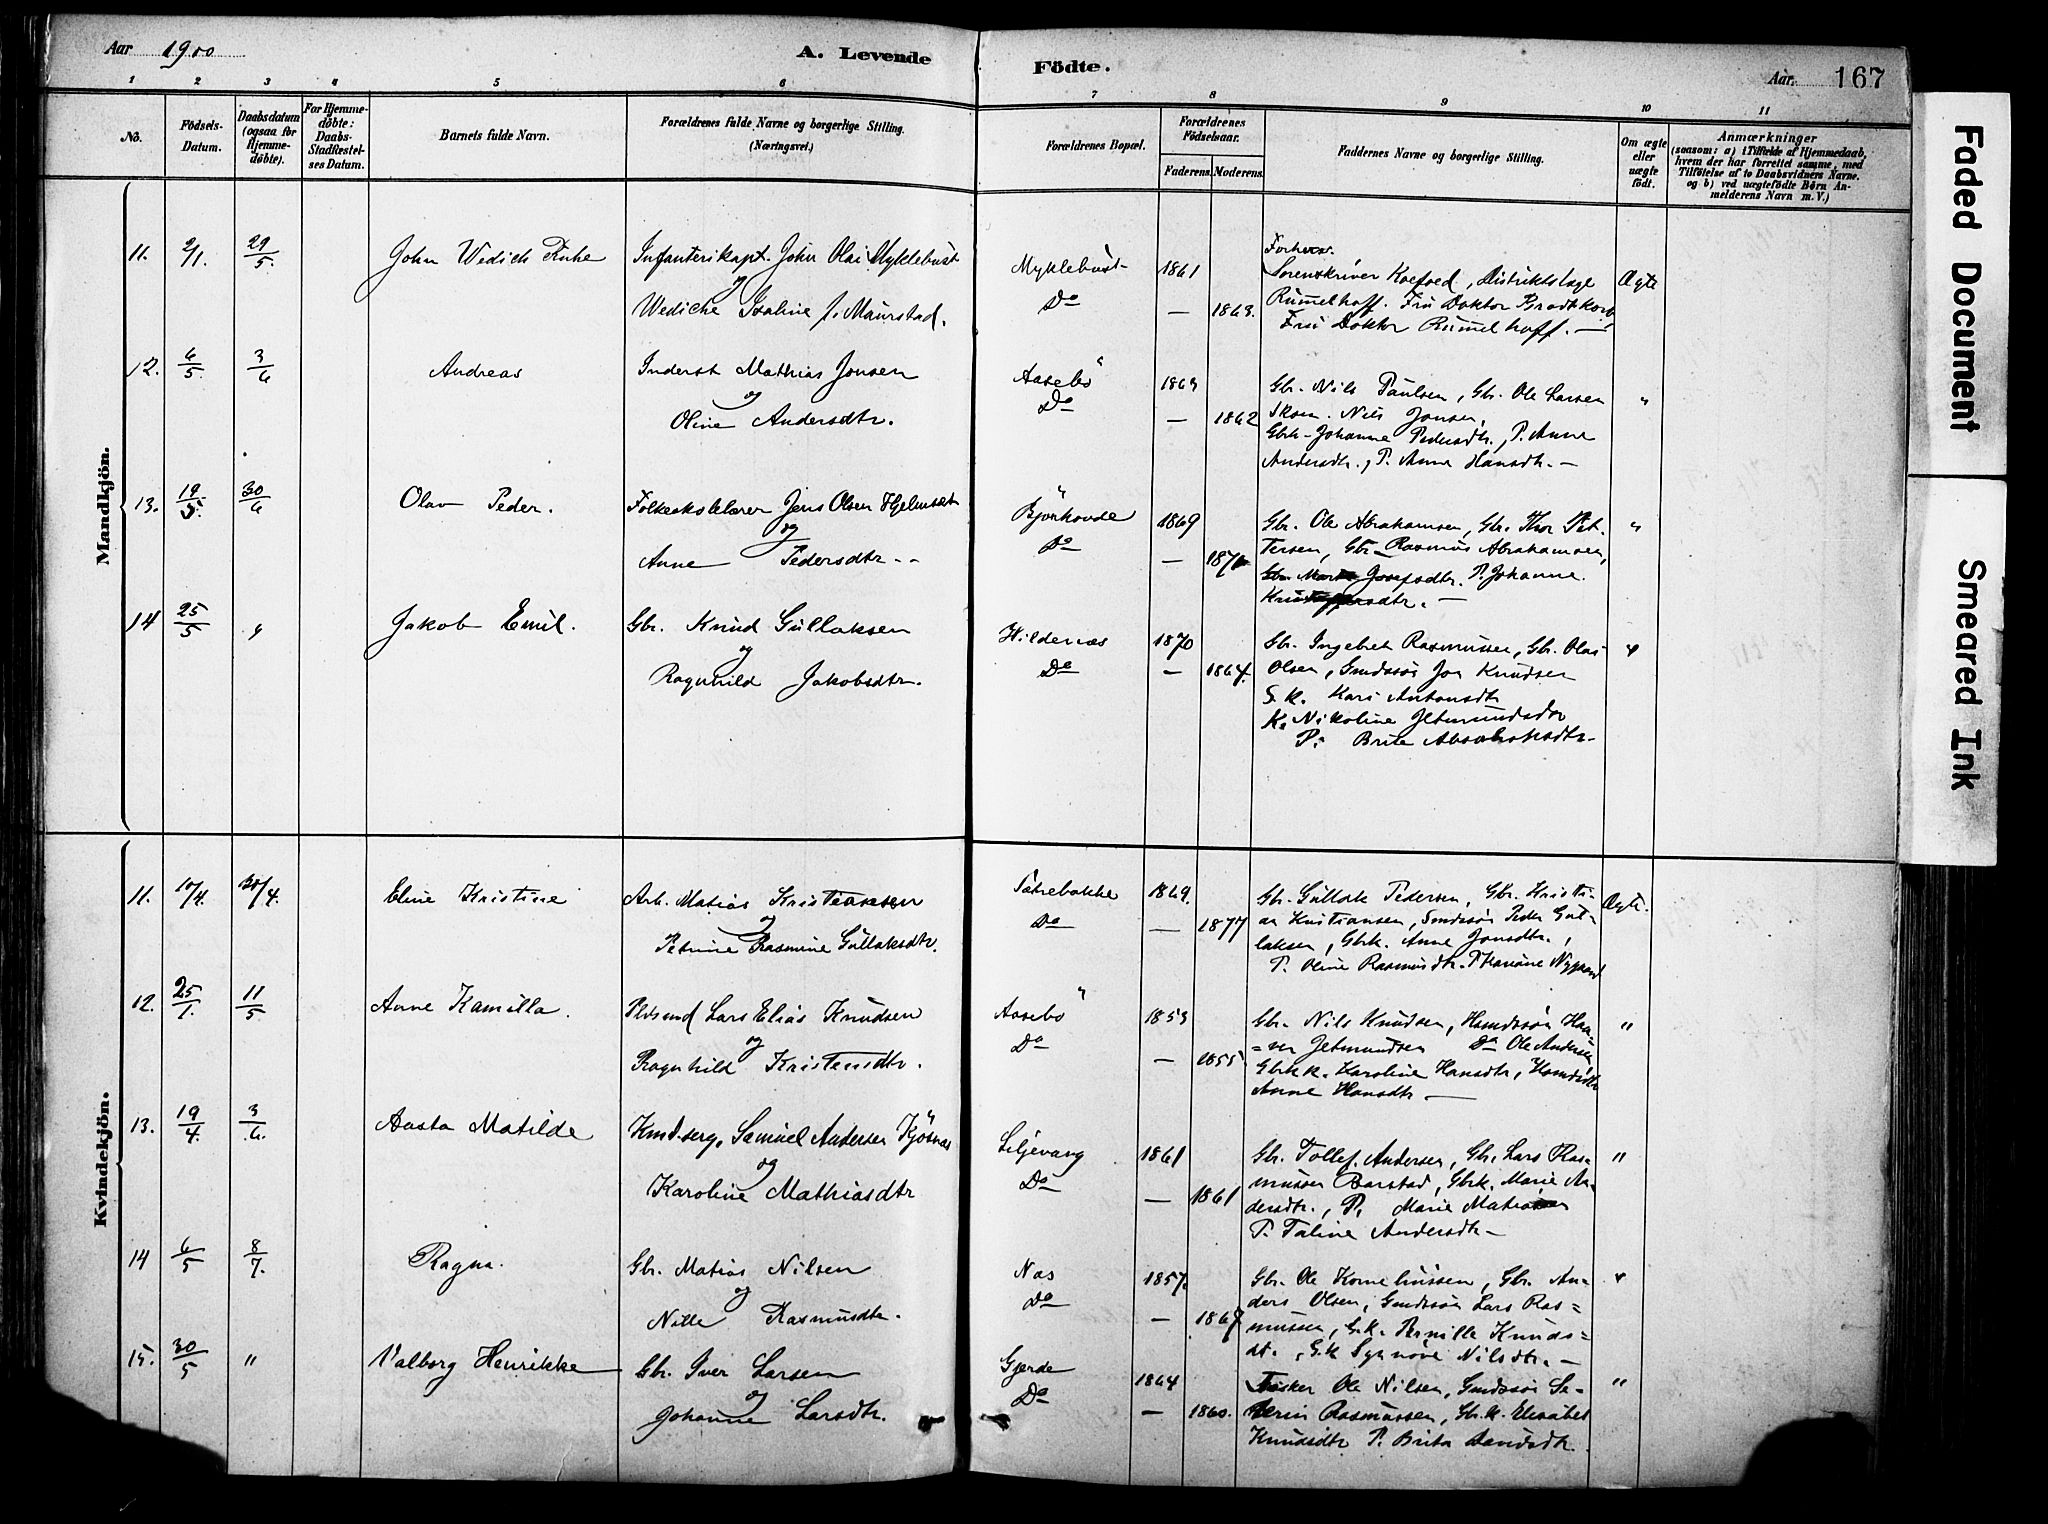 Aar 1900
A. Levende
Födte.
Aar.
167
1 2 3 4 5 6 7 8 9 10 11
No.
Födsels-Datum.
Daabsdatum (ogsaa for Hjemme-döbte).
For Hjemme-döbte: Daabs-Stadfæstel-ses Datum.
Barnets fulde Navn.
Forældrenes fulde Navne og borgerlige Stilling.
(Næringsvei.)
Forældrenes Bopæl.
Forældrenes Födselsaar.
Faderens. Moderens.
Faddernes Navne og borgerlige Stilling.
Om ægte eller uægte födt.
Anmærkninger
(saasom: a) i Tilfælde af Hjemmedaab,
hvem der har forrettet samme, med
Tilföielse af to Daabsvidners Navne.
og b) ved uægtefödte Börn An-
melderens Navn m. V.)
Mandkjön.
11. 2/1. 29/5. John Wedich Infanterikapt. John Olai Myklebust Myklebust 1861 Ægte
og
Wediche Isaline f. Maurstad. Do — 1863.
Sorenskriver Koefoed, Distriktslæge
Rumelhoff. Fru Doktor Brodtkorb,
Fru Doktor Rumelhoff. —
12. 6/5. 3/6 Andreas Inderst Mathias Jonsen Aasebö 1863 "
og
Oline Andersdtr. Do — 1862
Gbr. Nils Paulsen, Gbr. Ole Larsen
Skom. Nils Jonsen,
Gbrk. Johanne Pedersdtr., P. Anne
Andersdtr., P. Anne Hansdtr. —
13. 19/5. 30/6 Olav Peder. Folkeskolelærer Jens Olsen Hjelmset Björhovde 1869 "
og
Anne Pedersdtr. Do — 1871
Gbr. Ole Abrahamsen, Gbr. Thor Pet-
tersen, Gbr. Rasmus Abrahamsen,
Josefsdtr. P. Johanne
14 25/5 " Jakob Emil. Gbr. Knud Gullaksen Hildenæs 1870 "
og
Ragnhild Jakobsdtr. Do — 1864.
Gbr. Ingebret Rasmussen, Gbr. Olai
Olsen, Gmdssön Jon Knudsen
G. k. Kari Antonsdtr
K. Nikoline Jetmundsdtr
P. Brite
Kvindekjön.
11. 10/4. 30/4. Eline Kristine Arb. Matias Kristiansen 1869. Ægte.
og
Petrine Rasmine Gullaksdtr. Do — 1877
Gbr. Gullak Pedersen, Gbr. Kristi-
an Kristiansen, Gmdssön Peder Gul-
laksen, Gbrk. Anne Jonsdtr.,
P. Oline Rasmusdtr. P. Nygaard
12. 25/1. 11/5 Anne Kamilla. Pldsmd Lars Elias Knudsen Aasebö 1853 "
og
Ragnhild Kristensdtr. Do — 1855
Gbr. Nils Knudsen, Haa-
Jetmundsen Do Ole Andersen
Gbrkk. Karoline Hansdtr,
Anne Hansdtr —
13. 19/4. 3/6. Aasta Matilde Samuel Andersen Kjösnæs Liljevang 1861 "
og
Karoline Mathiasdtr Do — 1861
Gbr. Tollef. Andersen, Gbr. Lars Ras-
mussen Barstad, Gbrk. Marie An-
dersdtr., P. Marie
P. Taline Andersdtr —
14 6/5 8/7. Ragna. Gbr. Matias Nilsen Nos 1857. "
og
Nille Rasmusdtr. Do — 1867
Gbr. Ole Korneliussen, Gbr. An-
ders Olsen, Gmdssön Lars Ras=
mussen, G.k. Pernille Knuds=
dt., G.k Synnöve Nilsdtr. —
15. 30/5 " Valborg Henrikke Gbr. Iver Larsen Gjerde 1864 "
og
Johanne Larsdtr. Do — 1860.
Fisker Ole Nilsen, Gmdssön Se-
verin Rasmussen, Gbr.k. Elisabet
Knudsdtr P. Brita
Faded Document
Smeared Ink